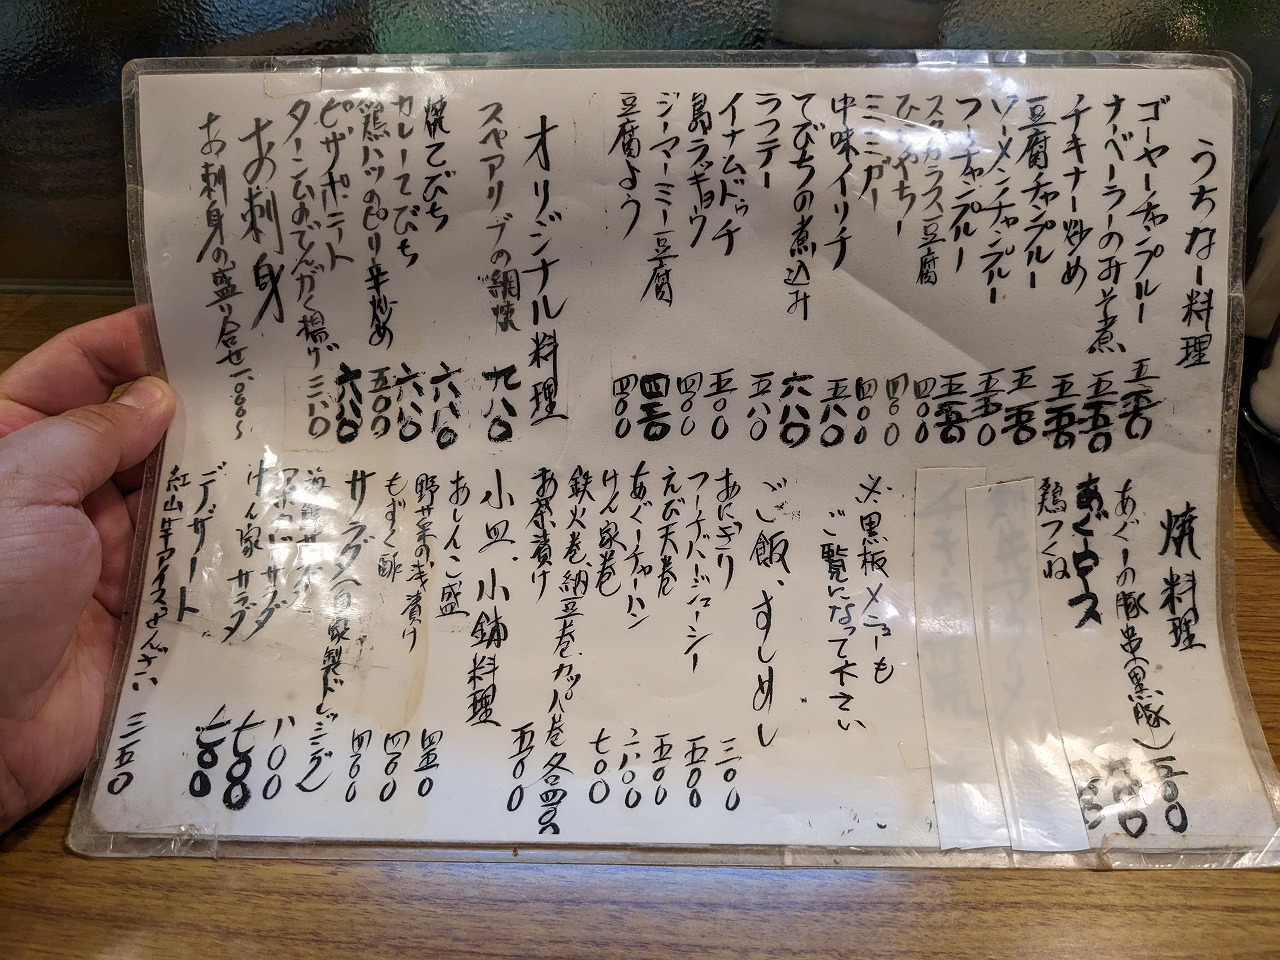 うちなー料理
ゴーヤーチャンプルー 五五〇
ナーベーラーのみそ煮 五五〇
チキナー炒め 五五〇
豆腐チャンプルー 五五〇
ソーメンチャンプルー 五五〇
フーチャンプルー 五五〇
スクガラス豆腐 四〇〇
ひらやちー 四〇〇
ミミガー 四〇〇
中味イリチ 五八〇
てびちの煮込み 六八〇
ラフテー 五八〇
イナムドゥチ 五〇〇
島ラッキョウ 四〇〇
ジーマーミー豆腐 四五〇
豆腐よう 四〇〇
オリジナル料理
スペアリブの網焼 九八〇
焼てびち 六八〇
カレーてびち 六八〇
鶏ハツのピリ辛炒め 五〇〇
ピザポニート 六八〇
ターンムのでんがく揚げ
お刺身
お刺身の盛り合せ 一、〇〇〇〜
焼料理
あぐーの豚串(黒豚) 五〇〇
あぐーロース
鶏つくね
※黒板メニューも
ご覧になって下さい
ご飯、すしめし
おにぎり 三〇〇
フーチバージューシー 五〇〇
えび天巻 五〇〇
あぐーチャーハン 八〇〇
けん家巻 七〇〇
鉄火巻、納豆巻、カッパ巻 各四〇〇
お茶漬け 五〇〇
小皿、小鉢料理
おしんこ盛 四五〇
野菜の浅漬け 四〇〇
もずく酢 四〇〇
サラダ(自家製ドレッシング)
サラダ 八〇〇
けん家サラダ 七〇〇
デザート
紅山芋アイスぜんざい 三五〇